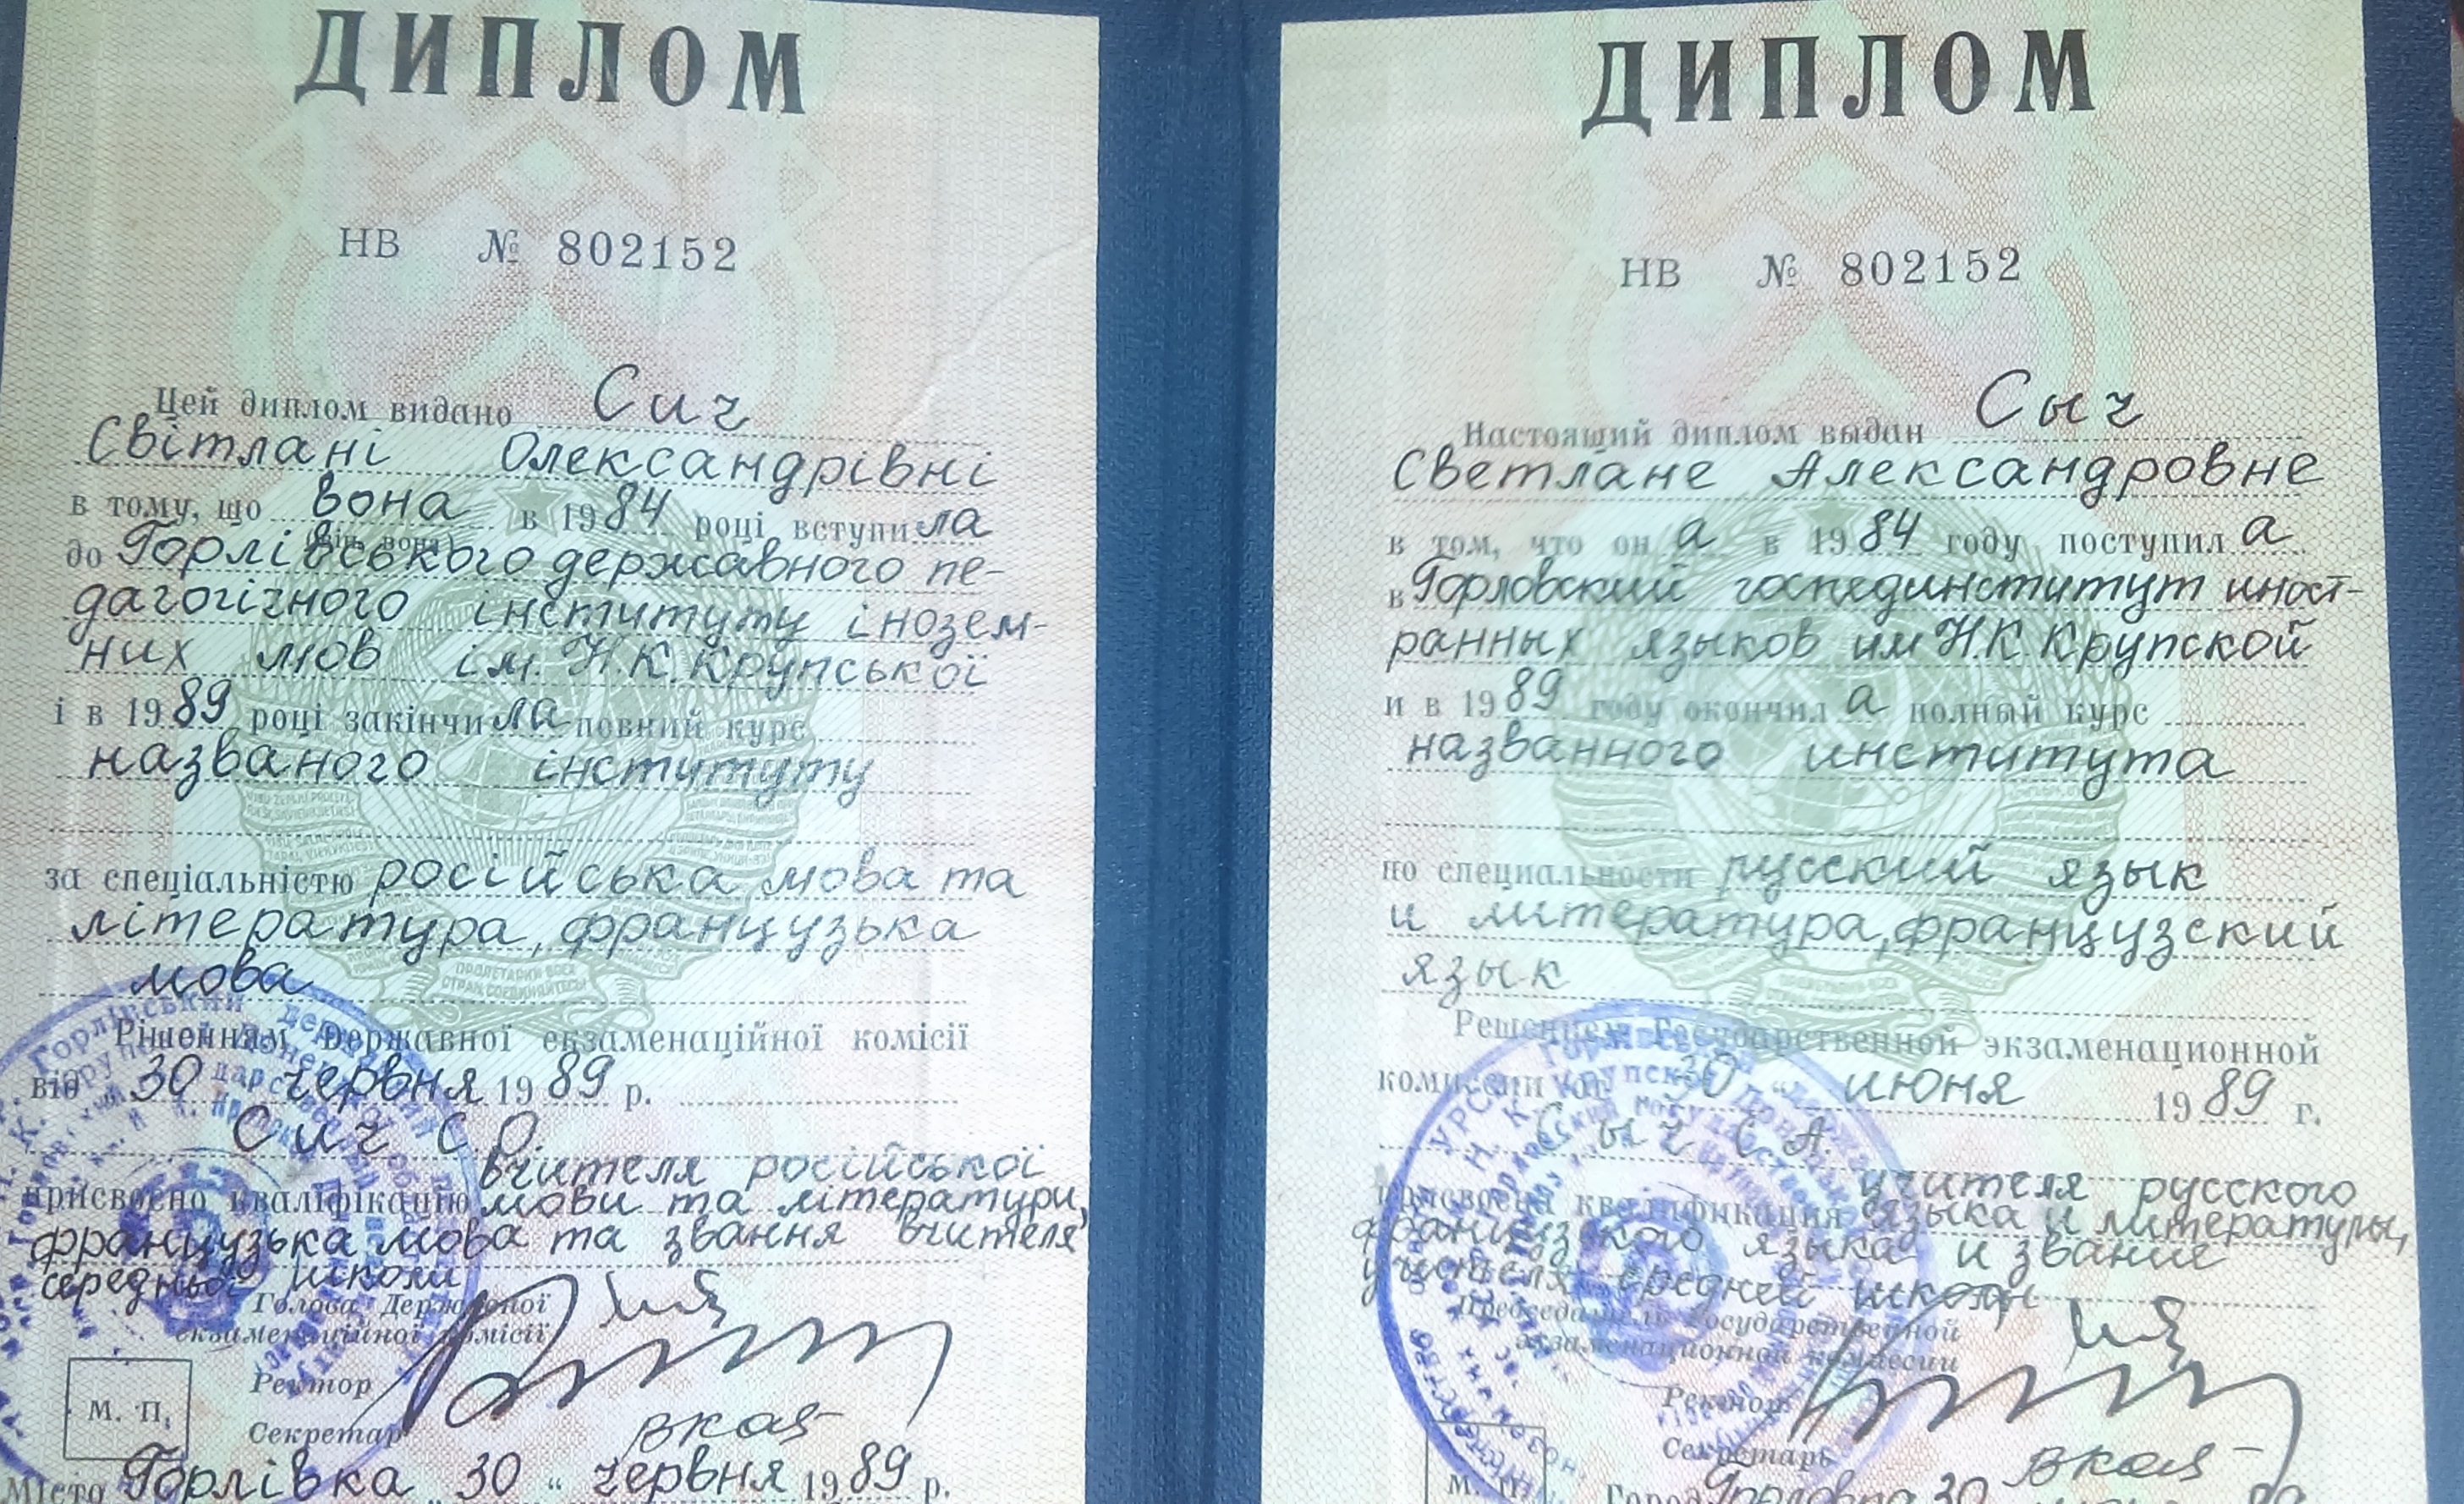 ДИПЛОМ
НВ № 802152
Цей диплом видано Сич
Світлані Олександрівні
в тому, що вона в 1984 році вступила
(він, вона)
до Горлівського державного пе-
дагогічного інституту інозем-
них мов ім. Н.К. Крупської
і в 1989 році закінчила повний курс
названого інституту
за спеціальністю російська мова та
література, французька
мова
Рішенням Державної екзаменаційної комісії
від 30 червня 1989 р.
Сич С О
вчителя російської
присвоєно кваліфікацію мови та літератури,
французька мова та звання вчителя
середньої школи
Голова Державної
екзаменаційної комісії
Ректор
М. П.
Секретар
Місто Горлівка 30 " червня 1989 р.
ДИПЛОМ
НВ № 802152
Настоящий диплом выдан Сыч
Светлане Александровне
в том, что он а в 1984 году поступил а
в Горловский госпединститут иност-
ранных языков им Н.К Крупской
и в 1989 году окончил а полный курс
названного института
по специальности русский язык
и литература, французский
язык
Решением Государственной экзаменационной
комиссии от 30 " июня 1989 г.
Сыч С А.
учителя русского
присвоена квалификация языка и литературы,
французского языка и звание
учителя средней школы
Председатель Государственной
экзаменационной комиссии
Ректор
Секретарь
М. П.
Город Горловка 30